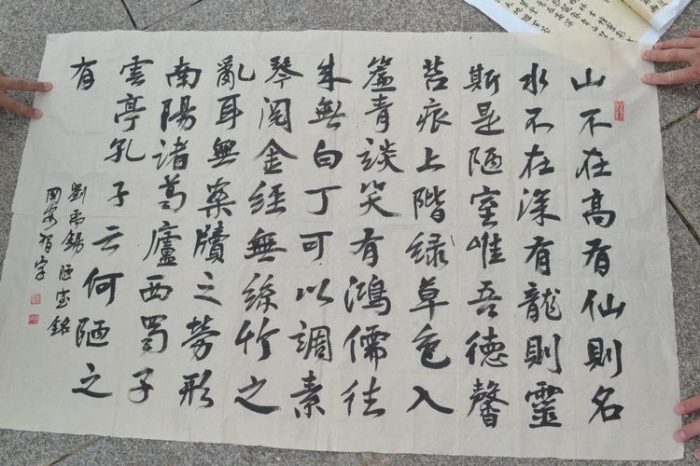 山不在高有仙則名
水不在深有龍則靈
斯是陋室唯吾德馨
苔痕上階緑草色入
簾青談笑有鴻儒往
来無白丁可以調素
琴閱金經無絲竹之
亂耳無案牘之勞形
南陽諸葛廬西蜀子
雲亭孔子云何陋之
有
劉禹錫陋室銘